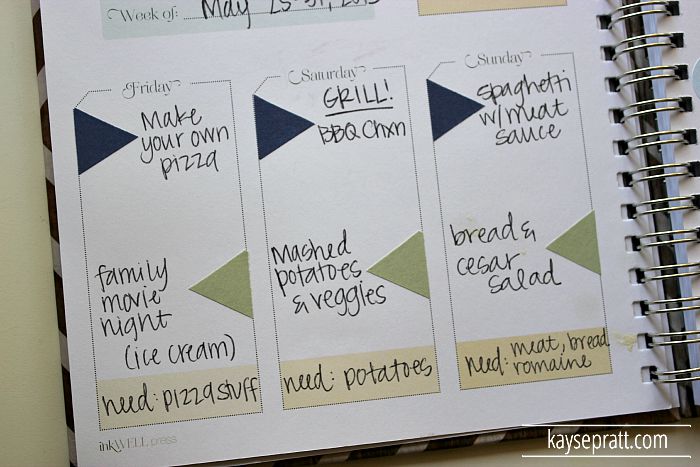 Week of: May 25-31, 2015
Friday
Make
your own
pizza
family
movie
night
(ice cream)
need: pizza stuff
Saturday
GRILL!
BBQ Chxn
Mashed
potatoes
& veggies
need: potatoes
Sunday
spaghetti
w/meat
sauce
bread &
cesar
salad
need: meat, bread
romaine
inkWELL press
kaysepratt.com